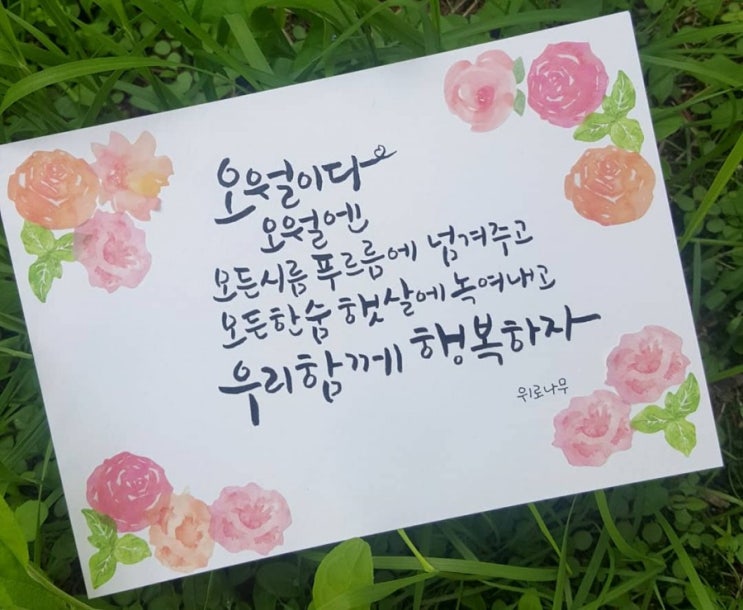 오월이다
오월엔
모든시름 푸르름에 넘겨주고
모든한숨 햇살에 녹여내고
우리함께 행복하자
위로나무